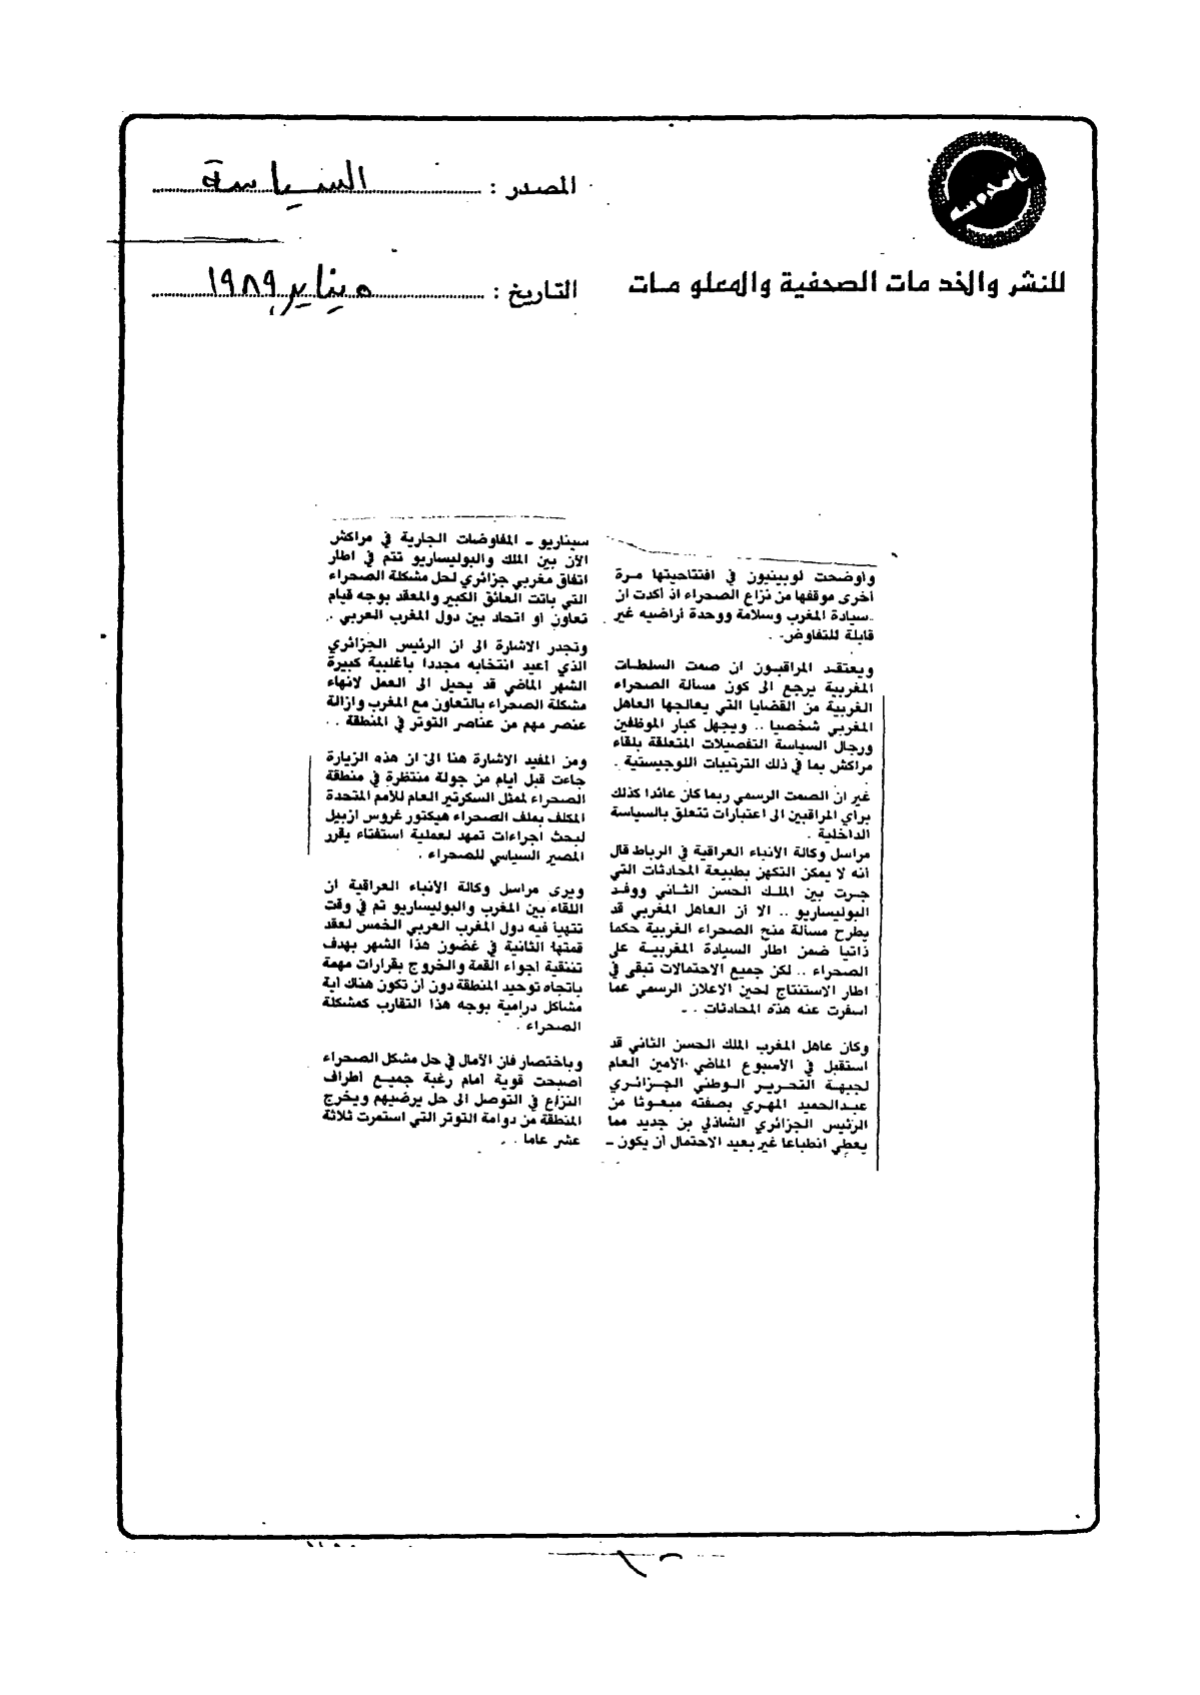 المصدر : السياسة
للنشر والخدمات الصحفية والمعلومات
التاريخ : ٥ يناير ١٩٨٩
واوضحت لوبينيون في افتتاحيتها مرة
اخرى موقفها من نزاع الصحراء اذ أكدت ان
سيادة المغرب وسلامة ووحدة أراضيه غير
قابلة للتفاوض .
ويعتقد المراقبون ان صمت السلطات
المغربية يرجع الى كون مسألة الصحراء
الغربية من القضايا التي يعالجها العاهل
المغربي شخصيا .. ويجهل كبار الموظفين
ورجال السياسة التفصيلات المتعلقة بلقاء
مراكش بما في ذلك الترتيبات اللوجيستية .
غير ان الصمت الرسمي ربما كان عائدا كذلك
براي المراقبين الى اعتبارات تتعلق بالسياسة
الداخلية .
مراسل وكالة الأنباء العراقية في الرباط قال
انه لا يمكن التكهن بطبيعة المحادثات التي
جرت بين الملك الحسن الثاني ووفد
البوليساريو .. الا أن العاهل المغربي قد
يطرح مسالة منح الصحراء الغربية حكما
ذاتيا ضمن اطار السيادة المغربية على
الصحراء .. لكن جميع الاحتمالات تبقى في
اطار الاستنتاج لحين الاعلان الرسمي عما
اسفرت عنه هذه المحادثات . .
وكان عاهل المغرب الملك الحسن الثاني قد
استقبل في الأسبوع الماضي الأمين العام
لجبهة التحرير الوطني الجزائري
عبدالحميد المهري بصفته مبعوثا من
الرئيس الجزائري الشاذلي بن جديد مما
يعطي انطباعا غير بعيد الاحتمال أن يكون ـ
سيناريو ـ المفاوضات الجارية في مراكش
الآن بين الملك والبوليساريو تتم في اطار
اتفاق مغربي جزائري لحل مشكلة الصحراء
التي باتت العائق الكبير والمعقد بوجه قيام
تعاون او اتحاد بين دول المغرب العربي .
وتجدر الاشارة الى ان الرئيس الجزائري
الذي أعيد انتخابه مجددا باغلبية كبيرة
الشهر الماضي قد يحيل الى العمل لانهاء
مشكلة الصحراء بالتعاون مع المغرب وازالة
عنصر مهم من عناصر التوتر في المنطقة . .
ومن المفيد الاشارة هنا الى ان هذه الزيارة
جاءت قبل ايام من جولة منتظرة في منطقة
الصحراء لممثل السكرتير العام للأمم المتحدة
المكلف بملف الصحراء هيكتور غروس ازبيل
لبحث اجراءات تمهد لعملية استفتاء يقرر
المصير السياسي للصحراء .
ويرى مراسل وكالة الأنباء العراقية ان
اللقاء بين المغرب والبوليساريو تم في وقت
تتهيأ فيه دول المغرب العربي الخمس لعقد
قمتها الثانية في غضون هذا الشهر بهدف
تننقية اجواء القمة والخروج بقرارات مهمة
باتجاه توحيد المنطقة دون أن تكون هناك أية
مشاكل درامية بوجه هذا التقارب كمشكلة
الصحراء .
وباختصار فان الآمال في حل مشكل الصحراء
اصبحت قوية امام رغبة جميع اطراف
النزاع في التوصل الى حل يرضيهم ويخرج
المنطقة من دوامة التوتر التي استمرت ثلاثة
عشر عاما . .